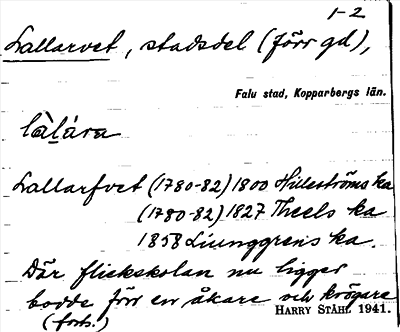 1-2
Lallarvet, stadsdel (förr gd),
Falu stad, Kopparbergs län.
Lallarfvet (1780-82) 1800 Hilleströms ka
(1780-82) 1827 Theels ka
1858 Ljunggrens ka.
Där flickskolan nu ligger
bodde förr en åkare och krögare
(forts.)
HARRY STÅHL 1941.